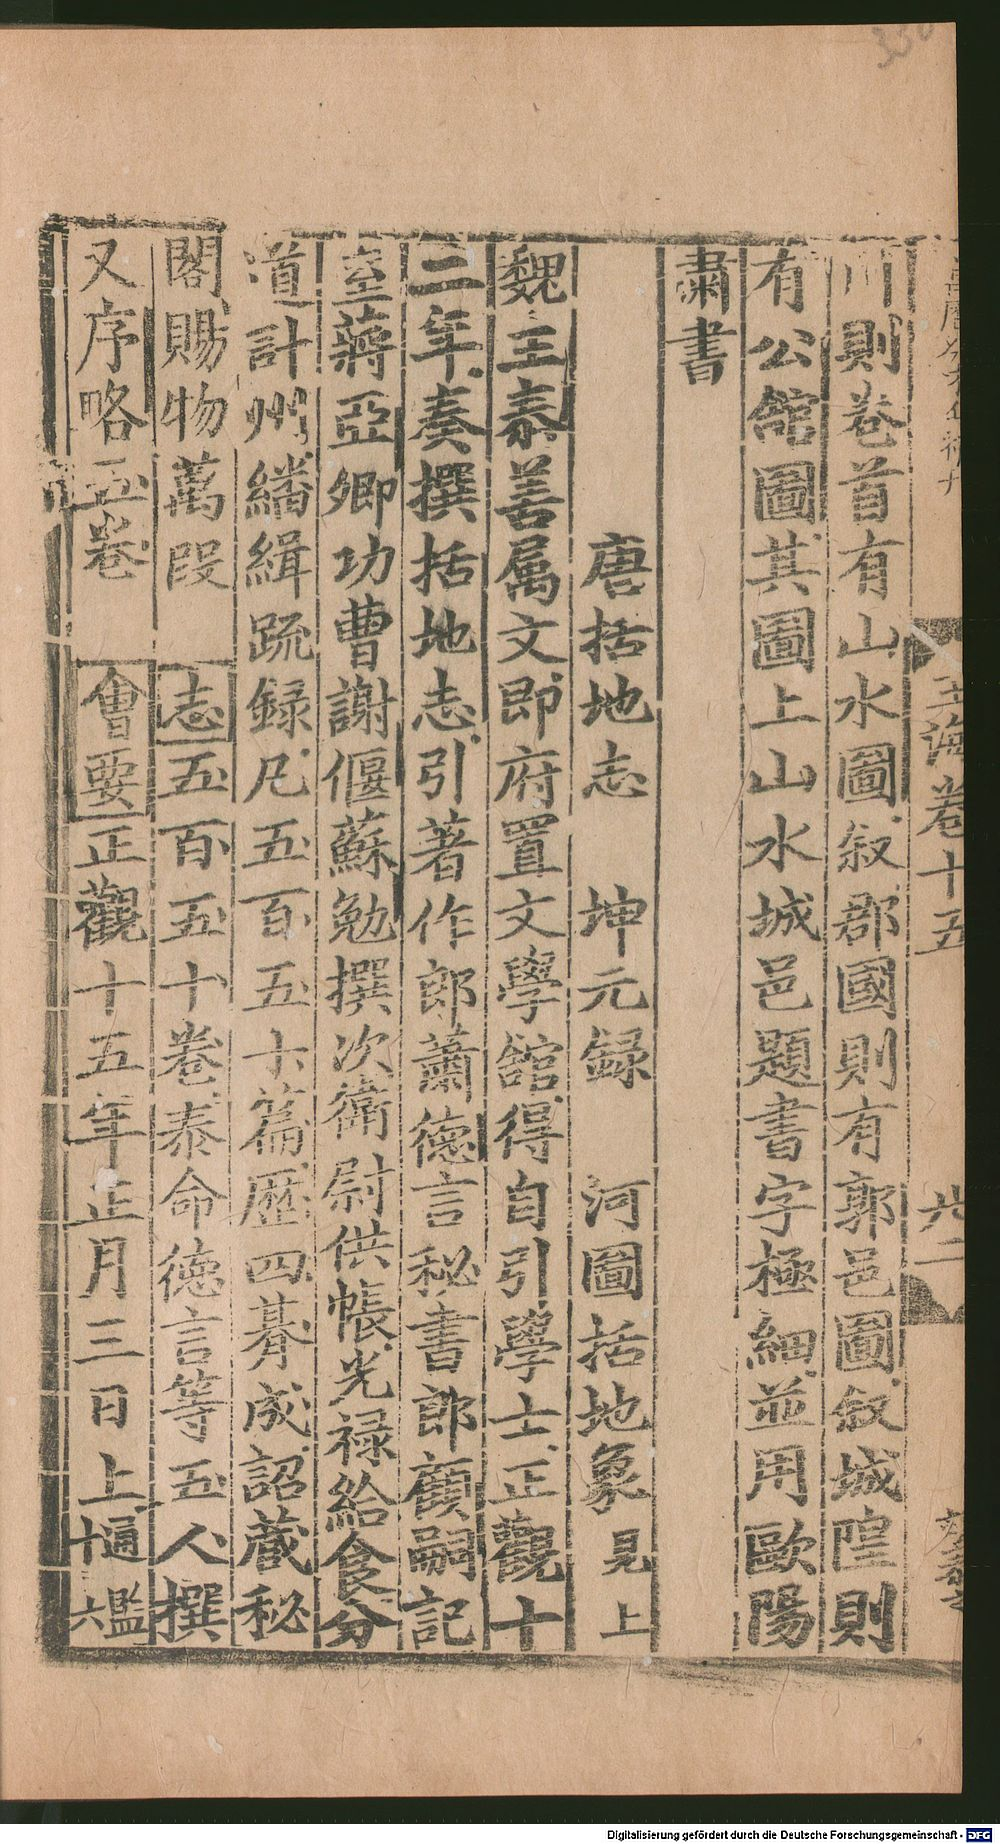 玉海卷十五
川則卷首有山水圖敘郡國則有郭邑圖敘城隍則
有公舘圖其圖上山水城邑題書字極細並用歐陽
肅書
唐括地志 坤元録 河圖括地象見上
魏王泰善属文即府置文學舘得自引學士正觀十
二年奏撰括地志引著作郎蕭德言秘書郎顧嗣記
室蔣亞卿功曹謝偃蘇勉撰次衛尉供帳光禄給食分
道計州繙緝䟽録凡五百五十篇歷四朞成詔藏秘
閣賜物萬段 志五百五十卷泰命德言等五人撰
又序略五卷 會要正觀十五年正月三日上通鑑十六
Digitalisierung gefördert durch die Deutsche Forschungsgemeinschaft - DFG